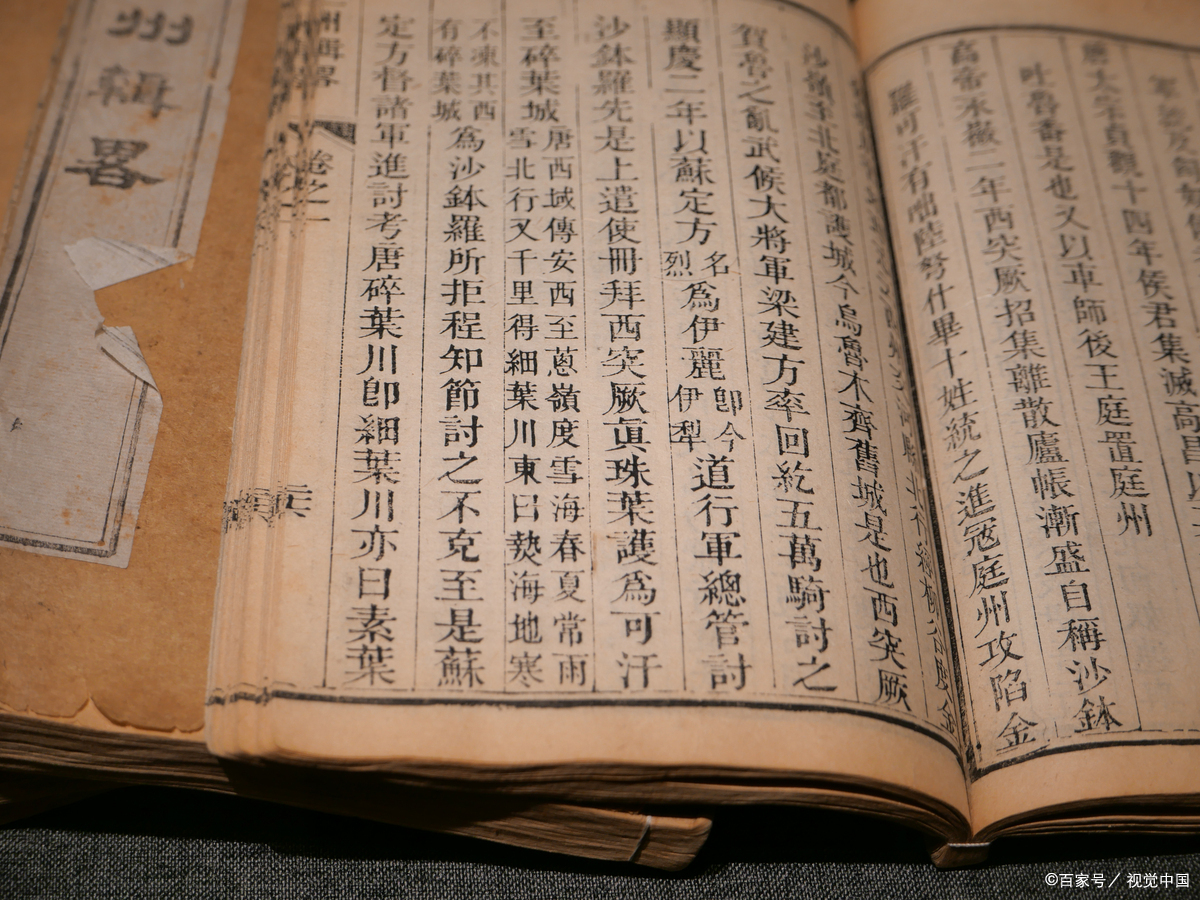 太宗貞觀十四年侯君集滅高昌以
吐魯番是也又以車師後王庭置庭州
高宗永徽二年西突厥招集離散廬帳漸盛自稱沙鉢
羅可汗有咄陸努什畢十姓統之進寇庭州攻陷金
北庭都護城今烏魯木齊舊城是也西突厥
賀魯之亂武候大將軍梁建方率回紇五萬騎討之
顯慶二年以蘇定方名烈爲伊麗卽今伊犂道行軍總管討
沙鉢羅先是上遣使冊拜西突厥眞珠葉護爲可汗
至碎葉城唐西域傳安西至蔥嶺度雪海春夏常雨雪北行又千里得細葉川東曰熱海地寒
不凍其西有碎葉城爲沙鉢羅所拒程知節討之不克至是蘇
定方督諸軍進討考唐碎葉川卽細葉川亦曰素葉
州輯畧
卷之二
州輯畧
©百家号／视觉中国